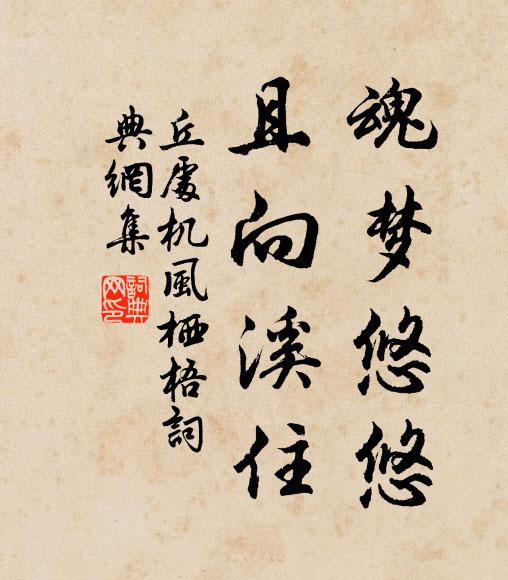 魂梦悠悠
且向溪住
丘處机風栖梧詞
典網集
詞典
网印